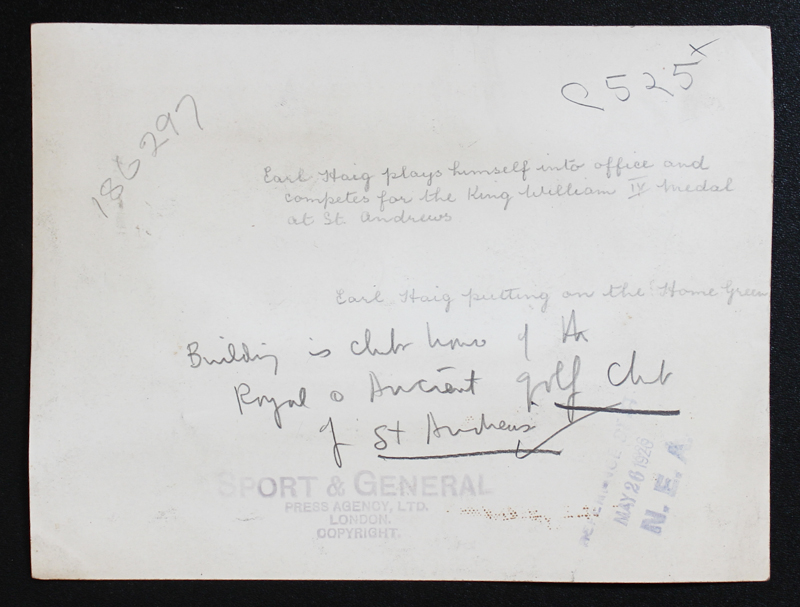 P525x
186297
Earl Haig plays himself into office and
competes for the King William IV Medal
at St. Andrews
Earl Haig putting on the Home Green
Building is club house of the
Royal & Ancient golf club
of St Andrews
SPORT & GENERAL
PRESS AGENCY, LTD.
LONDON.
COPYRIGHT.
REFERENCE DEPT
MAY 26 1926
N. E. A.